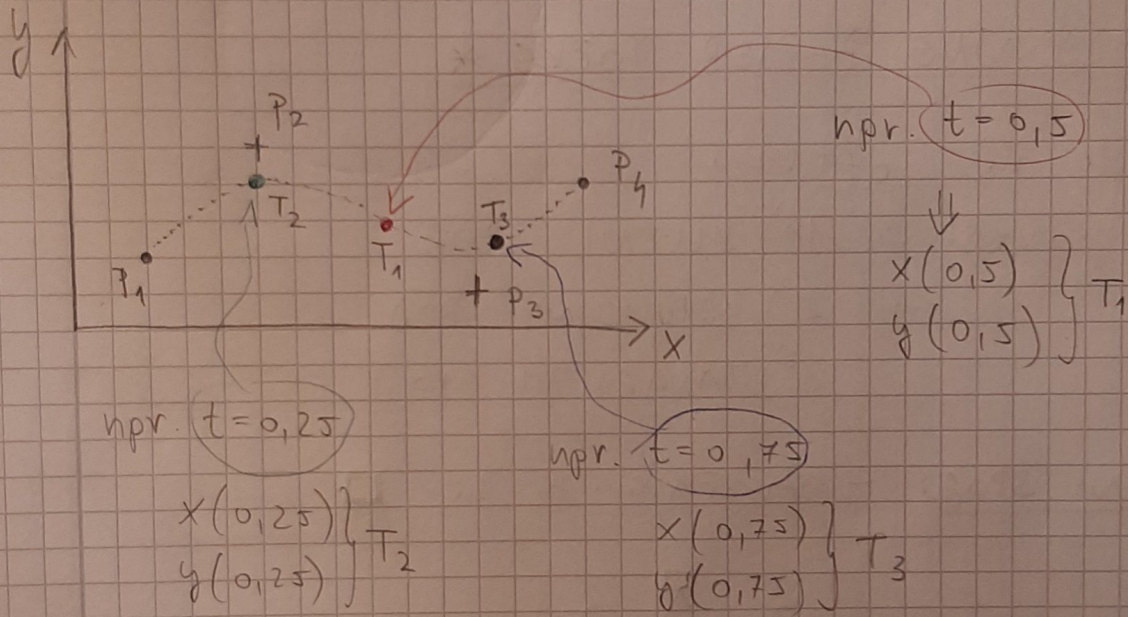 y
P2
T2
P1
T1
T3
P3
P4
x
npr. t = 0,5
⇓
x(0,5)
y(0,5)
} T1
npr. t = 0,25
x(0,25)
y(0,25)
} T2
npr. t = 0,75
x(0,75)
y(0,75)
} T3